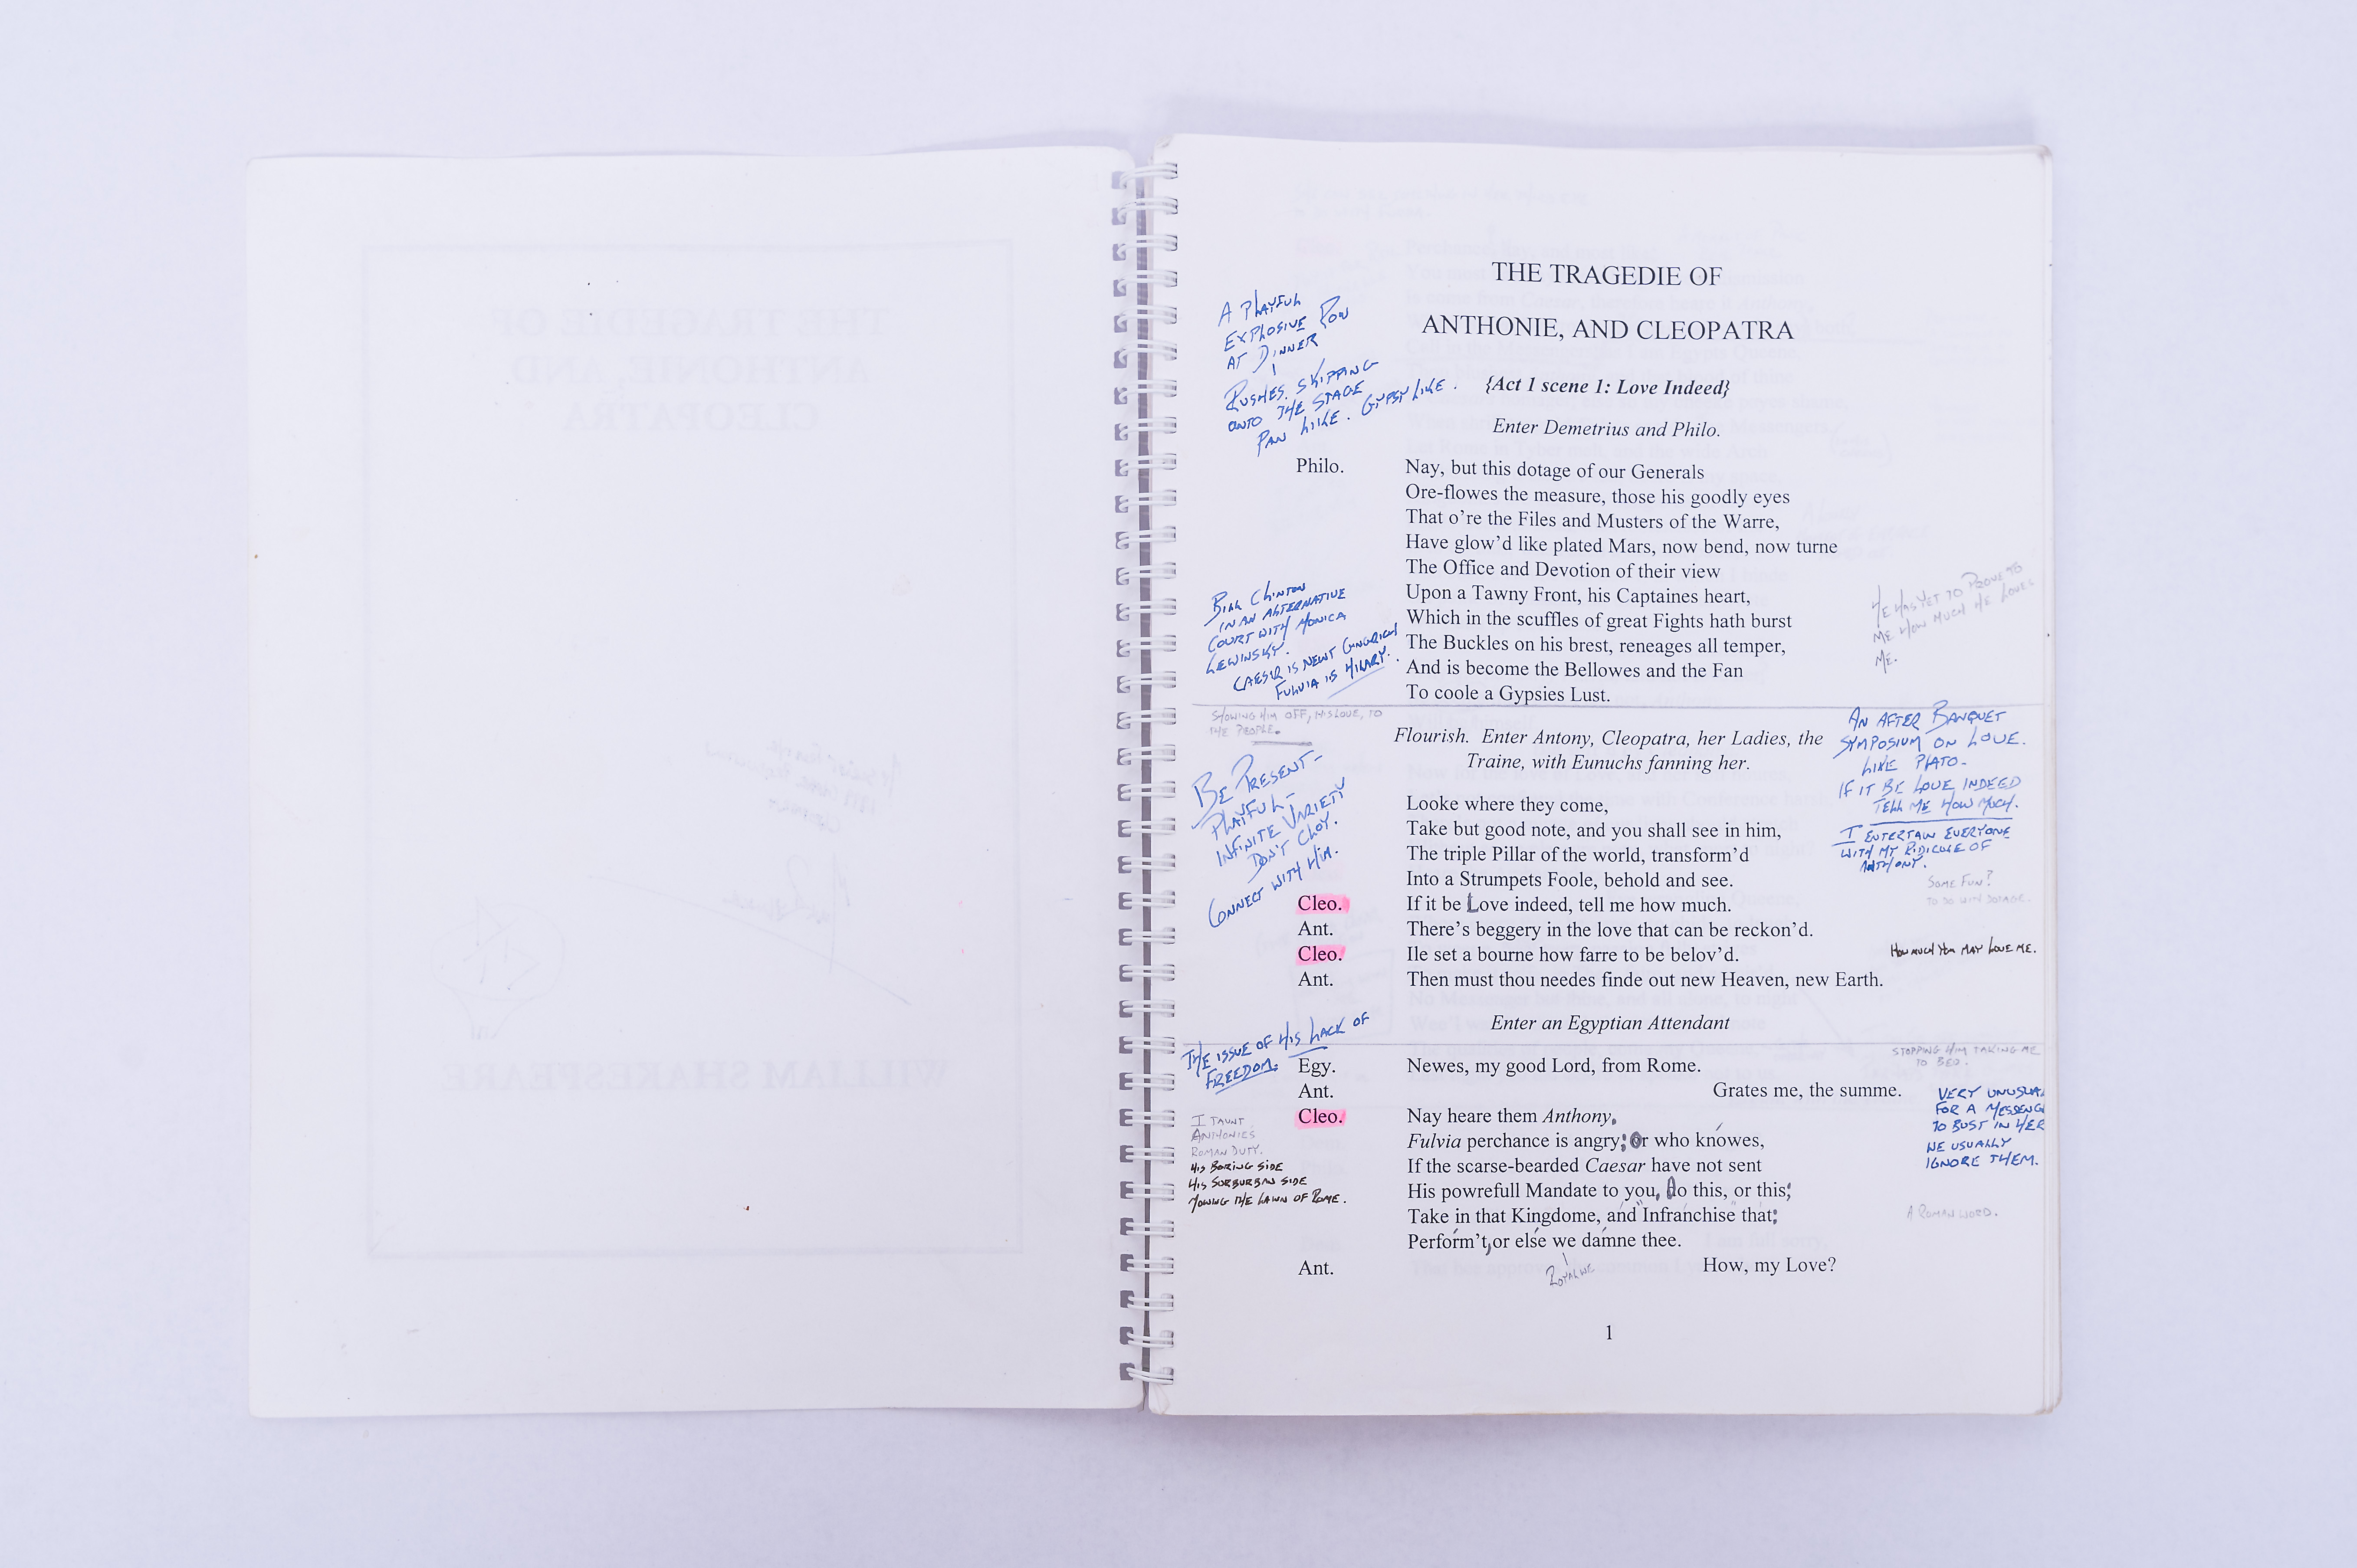 THE TRAGEDIE OF
ANTHONIE, AND CLEOPATRA
WILLIAM SHAKESPEARE
THE TRAGEDIE OF
ANTHONIE, AND CLEOPATRA
A PLAYFUL
EXPLOSIVE ROW
AT DINNER
RUSHES. SKIPPING
ONTO THE STAGE
PAN LIKE. GYPSY LIKE.
{Act 1 scene 1: Love Indeed}
Enter Demetrius and Philo.
Philo. Nay, but this dotage of our Generals
Ore-flowes the measure, those his goodly eyes
That o’re the Files and Musters of the Warre,
Have glow’d like plated Mars, now bend, now turne
The Office and Devotion of their view
Upon a Tawny Front, his Captaines heart,
Which in the scuffles of great Fights hath burst
The Buckles on his brest, reneages all temper,
And is become the Bellowes and the Fan
To coole a Gypsies Lust.
BILL CLINTON
IN AN ALTERNATIVE
COURT WITH MONICA
LEWINSKY.
CAESAR IS NEWT GINGRICH
FULVIA IS HILARY.
HE HAS YET TO PROVE TO
ME HOW MUCH HE LOVES
ME.
SHOWING HIM OFF, HIS LOVE, TO
THE PEOPLE.
Flourish. Enter Antony, Cleopatra, her Ladies, the
Traine, with Eunuchs fanning her.
BE PRESENT-
PLAYFUL-
INFINITE VARIETY
DON'T CLOY.
CONNECT WITH HIM.
AN AFTER BANQUET
SYMPOSIUM ON LOVE.
LIKE PLATO-
IF IT BE LOVE INDEED
TELL ME HOW MUCH.
I ENTERTAIN EVERYONE
WITH MY RIDICULE OF
ANTHONY.
SOME FUN?
Looke where they come,
Take but good note, and you shall see in him,
The triple Pillar of the world, transform’d
Into a Strumpets Foole, behold and see.
Cleo. If it be Love indeed, tell me how much.
Ant. There’s beggery in the love that can be reckon’d.
Cleo. Ile set a bourne how farre to be belov’d.
HOW MUCH YOU MAY LOVE ME.
Ant. Then must thou needes finde out new Heaven, new Earth.
Enter an Egyptian Attendant
THE ISSUE OF HIS LACK OF
FREEDOM.
STOPPING HIM TAKING ME
TO BED.
Egy. Newes, my good Lord, from Rome.
Ant. Grates me, the summe.
Cleo. Nay heare them Anthony,
Fulvia perchance is angry; Or who knowes,
If the scarse-bearded Caesar have not sent
His powrefull Mandate to you, do this, or this;
Take in that Kingdome, and "Infranchise" that;
Perform’t, or else we damne thee.
ROYAL WE
Ant. How, my Love?
I TAUNT
ANTHONIES
ROMAN DUTY.
HIS BORING SIDE
HIS SURBURBAN SIDE
MOWING THE LAWN OF ROME.
VERY UNUSUA
FOR A MESSENG
TO BUST IN HER
WE USUALLY
IGNORE THEM.
A ROMAN WORD.
1